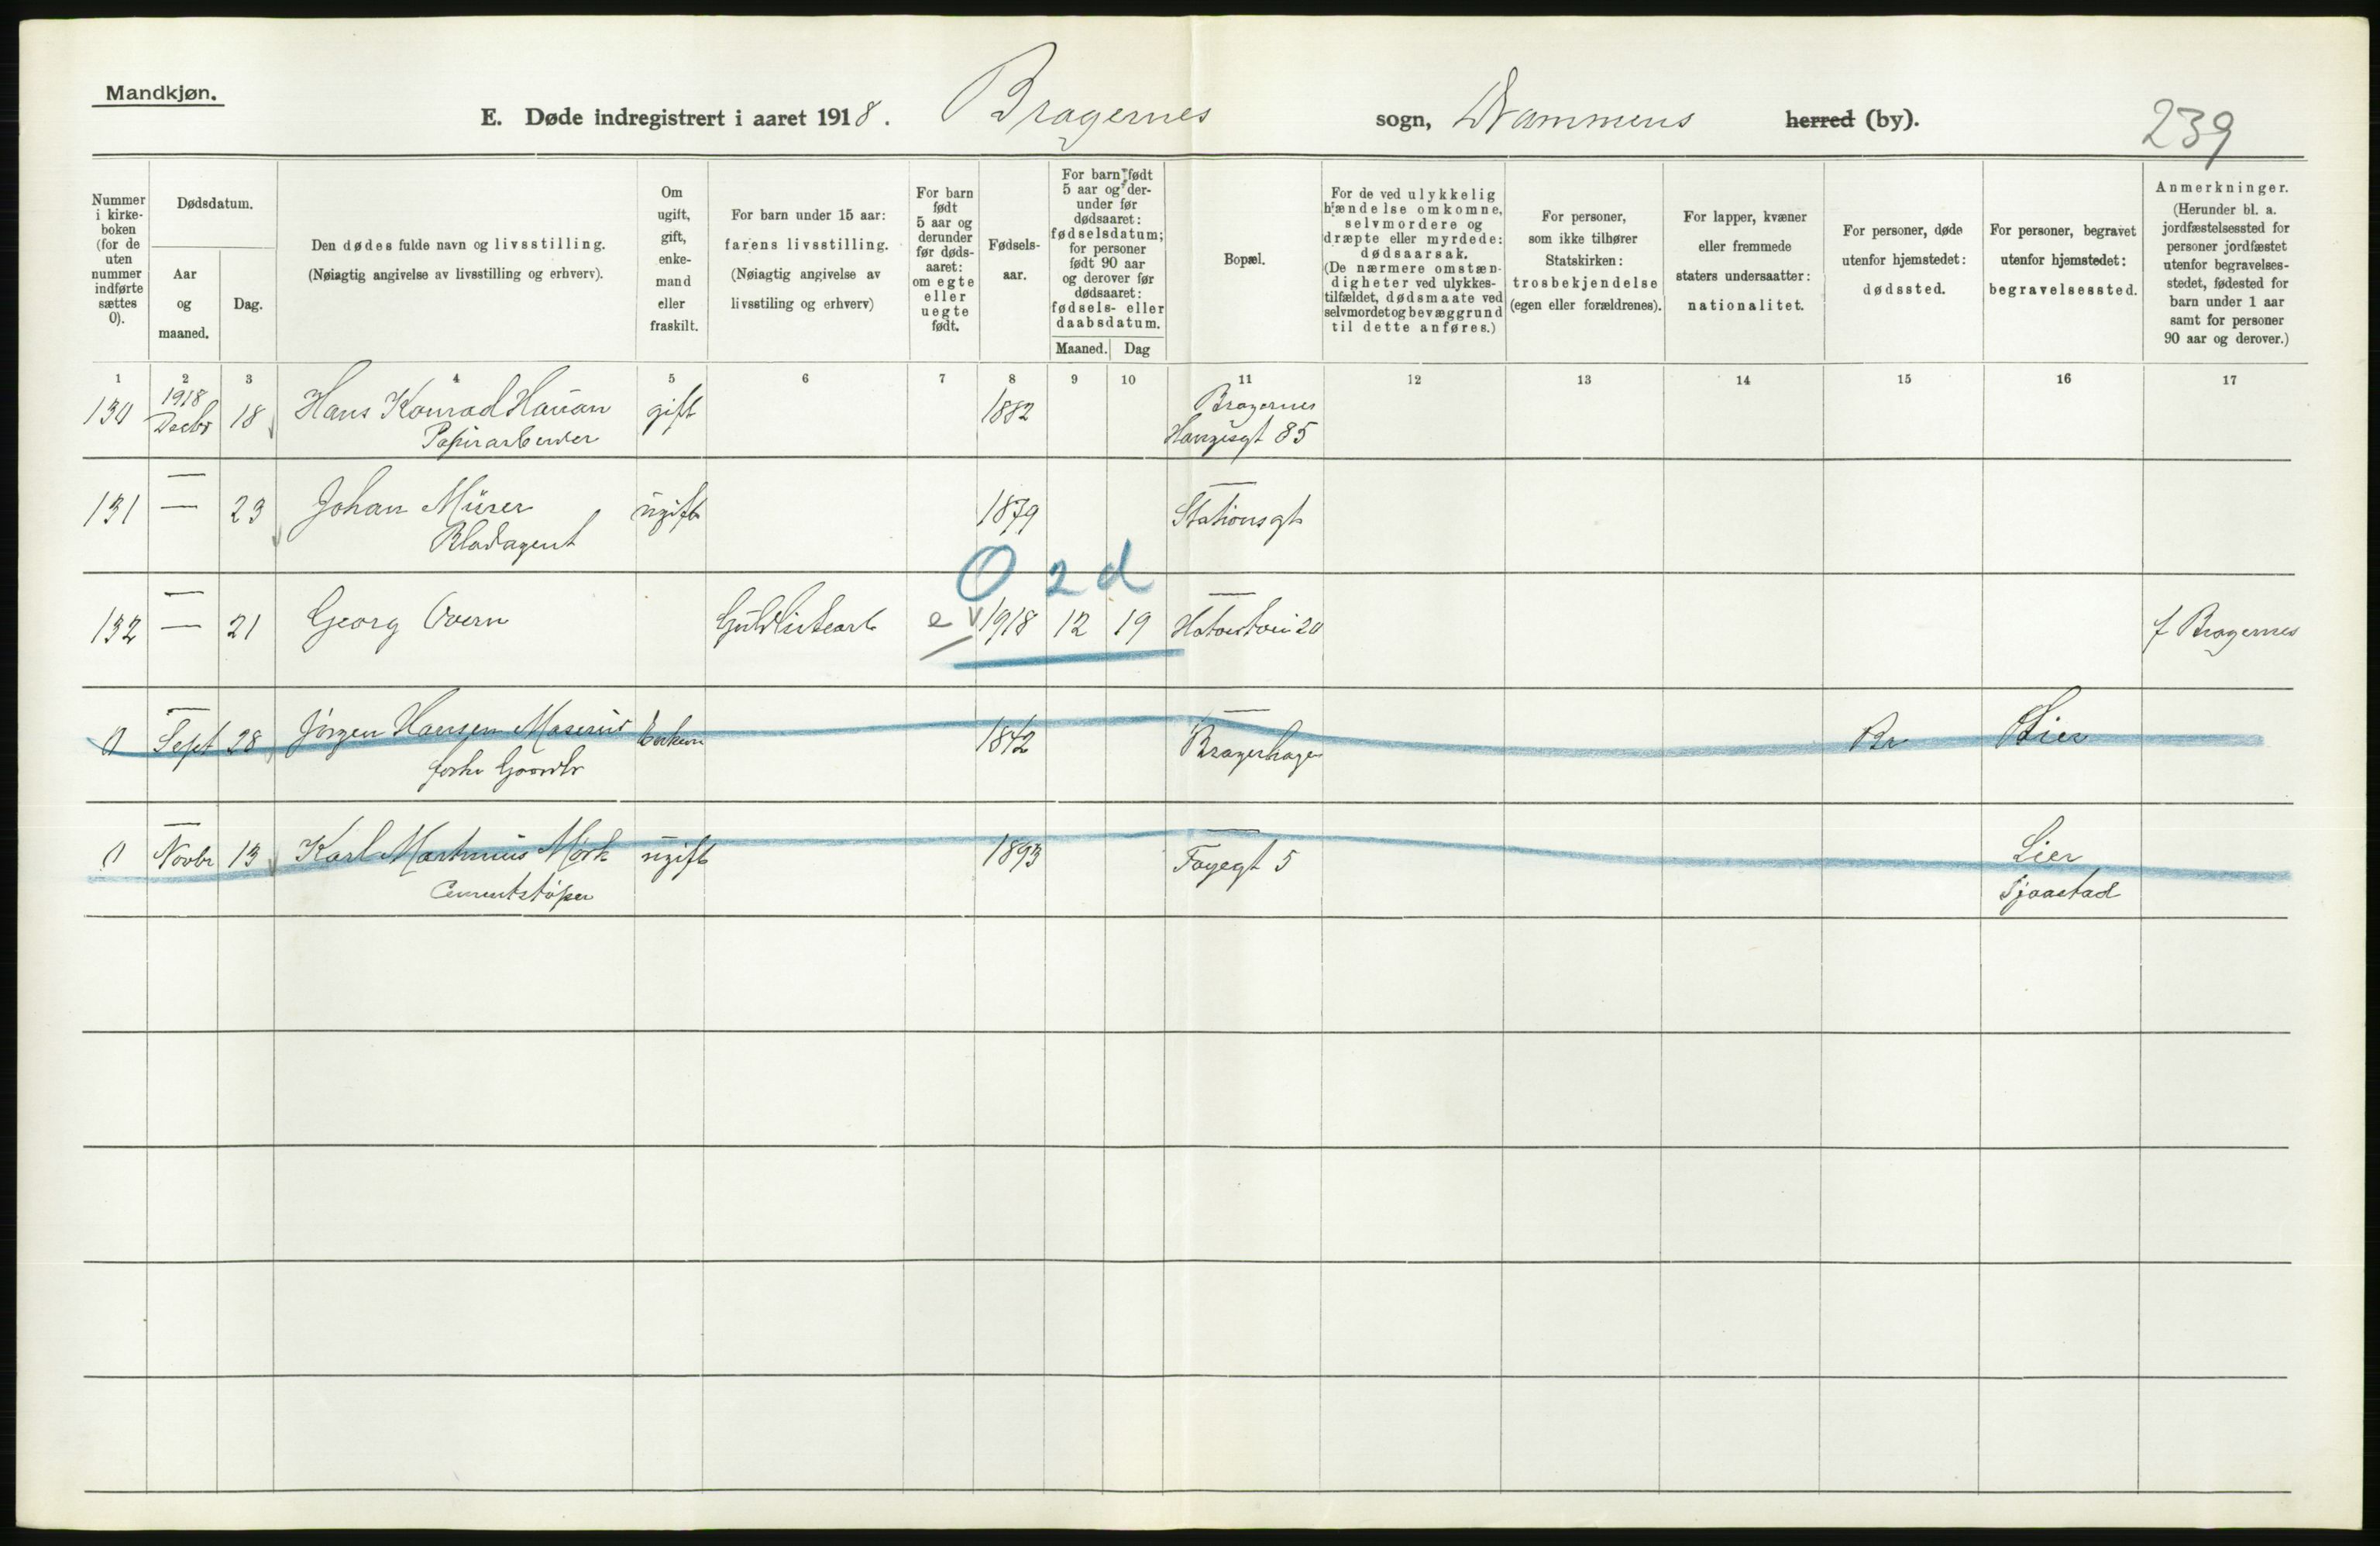 Mandkjøn.
E. Døde indregistrert i aaret 1918. Bragernes sogn, Drammens herred (by).
239
Nummer i kirke-boken (for de uten nummer indførte sættes 0).
Dødsdatum.
Aar og maaned.
Dag.
Den dødes fulde navn og livsstilling.
(Nøiagtig angivelse av livsstilling og erhverv).
Om ugift, gift, enke-mand eller fraskilt.
For barn under 15 aar: farens livsstilling.
(Nøiagtig angivelse av livsstiling og erhverv)
For barn født 5 aar og derunder før døds-aaret: om egte eller uegte født.
Fødsels-aar.
For barn født 5 aar og der-under før dødsaaret: fødselsdatum; for personer født 90 aar og derover før dødsaaret: fødsels- eller daabsdatum.
Maaned. Dag
Bopæl.
For de ved ulykkelig hændelse omkomne, selvmordere og dræpte eller myrdede: dødsaarsak.
(De nærmere omstæn-digheter ved ulykkes-tilfældet, dødsmaate ved selvmordet og bevæggrund til dette anføres.)
For personer, som ikke tilhører Statskirken: trosbekjendelse (egen eller forældrenes).
For lapper, kvæner eller fremmede staters undersaatter: nationalitet.
For personer, døde utenfor hjemstedet: dødssted.
For personer, begravet utenfor hjemstedet: begravelsessted.
Anmerkninger.
(Herunder bl. a. jordfæstelsessted for personer jordfæstet utenfor begravelses-stedet, fødested for barn under 1 aar samt for personer 90 aar og derover.)
1 2 3 4 5 6 7 8 9 10 11 12 13 14 15 16 17
130 1918 Decbr 18 Hans Konrad Hauan gift 1882 Bragernes
Papirarbeider Haugesgt 85
131 — — 23 Johan Mürer ugift 1879 — Stationsgt
Bladagent
0 2 d
132 — — 21 Georg Overn Guldlistearb e v 1918 12 19 — 20 f Bragernes
0 — Sept 28 Jörgen Hansen Maserud Enkem 1842 — Bragerhagen Br Lier
forhv Gaardbr
0 — Novbr 13 Karl Martinius Mörk ugift 1893 — Fayegt 5 Lier
Cementstöper Sjaastad